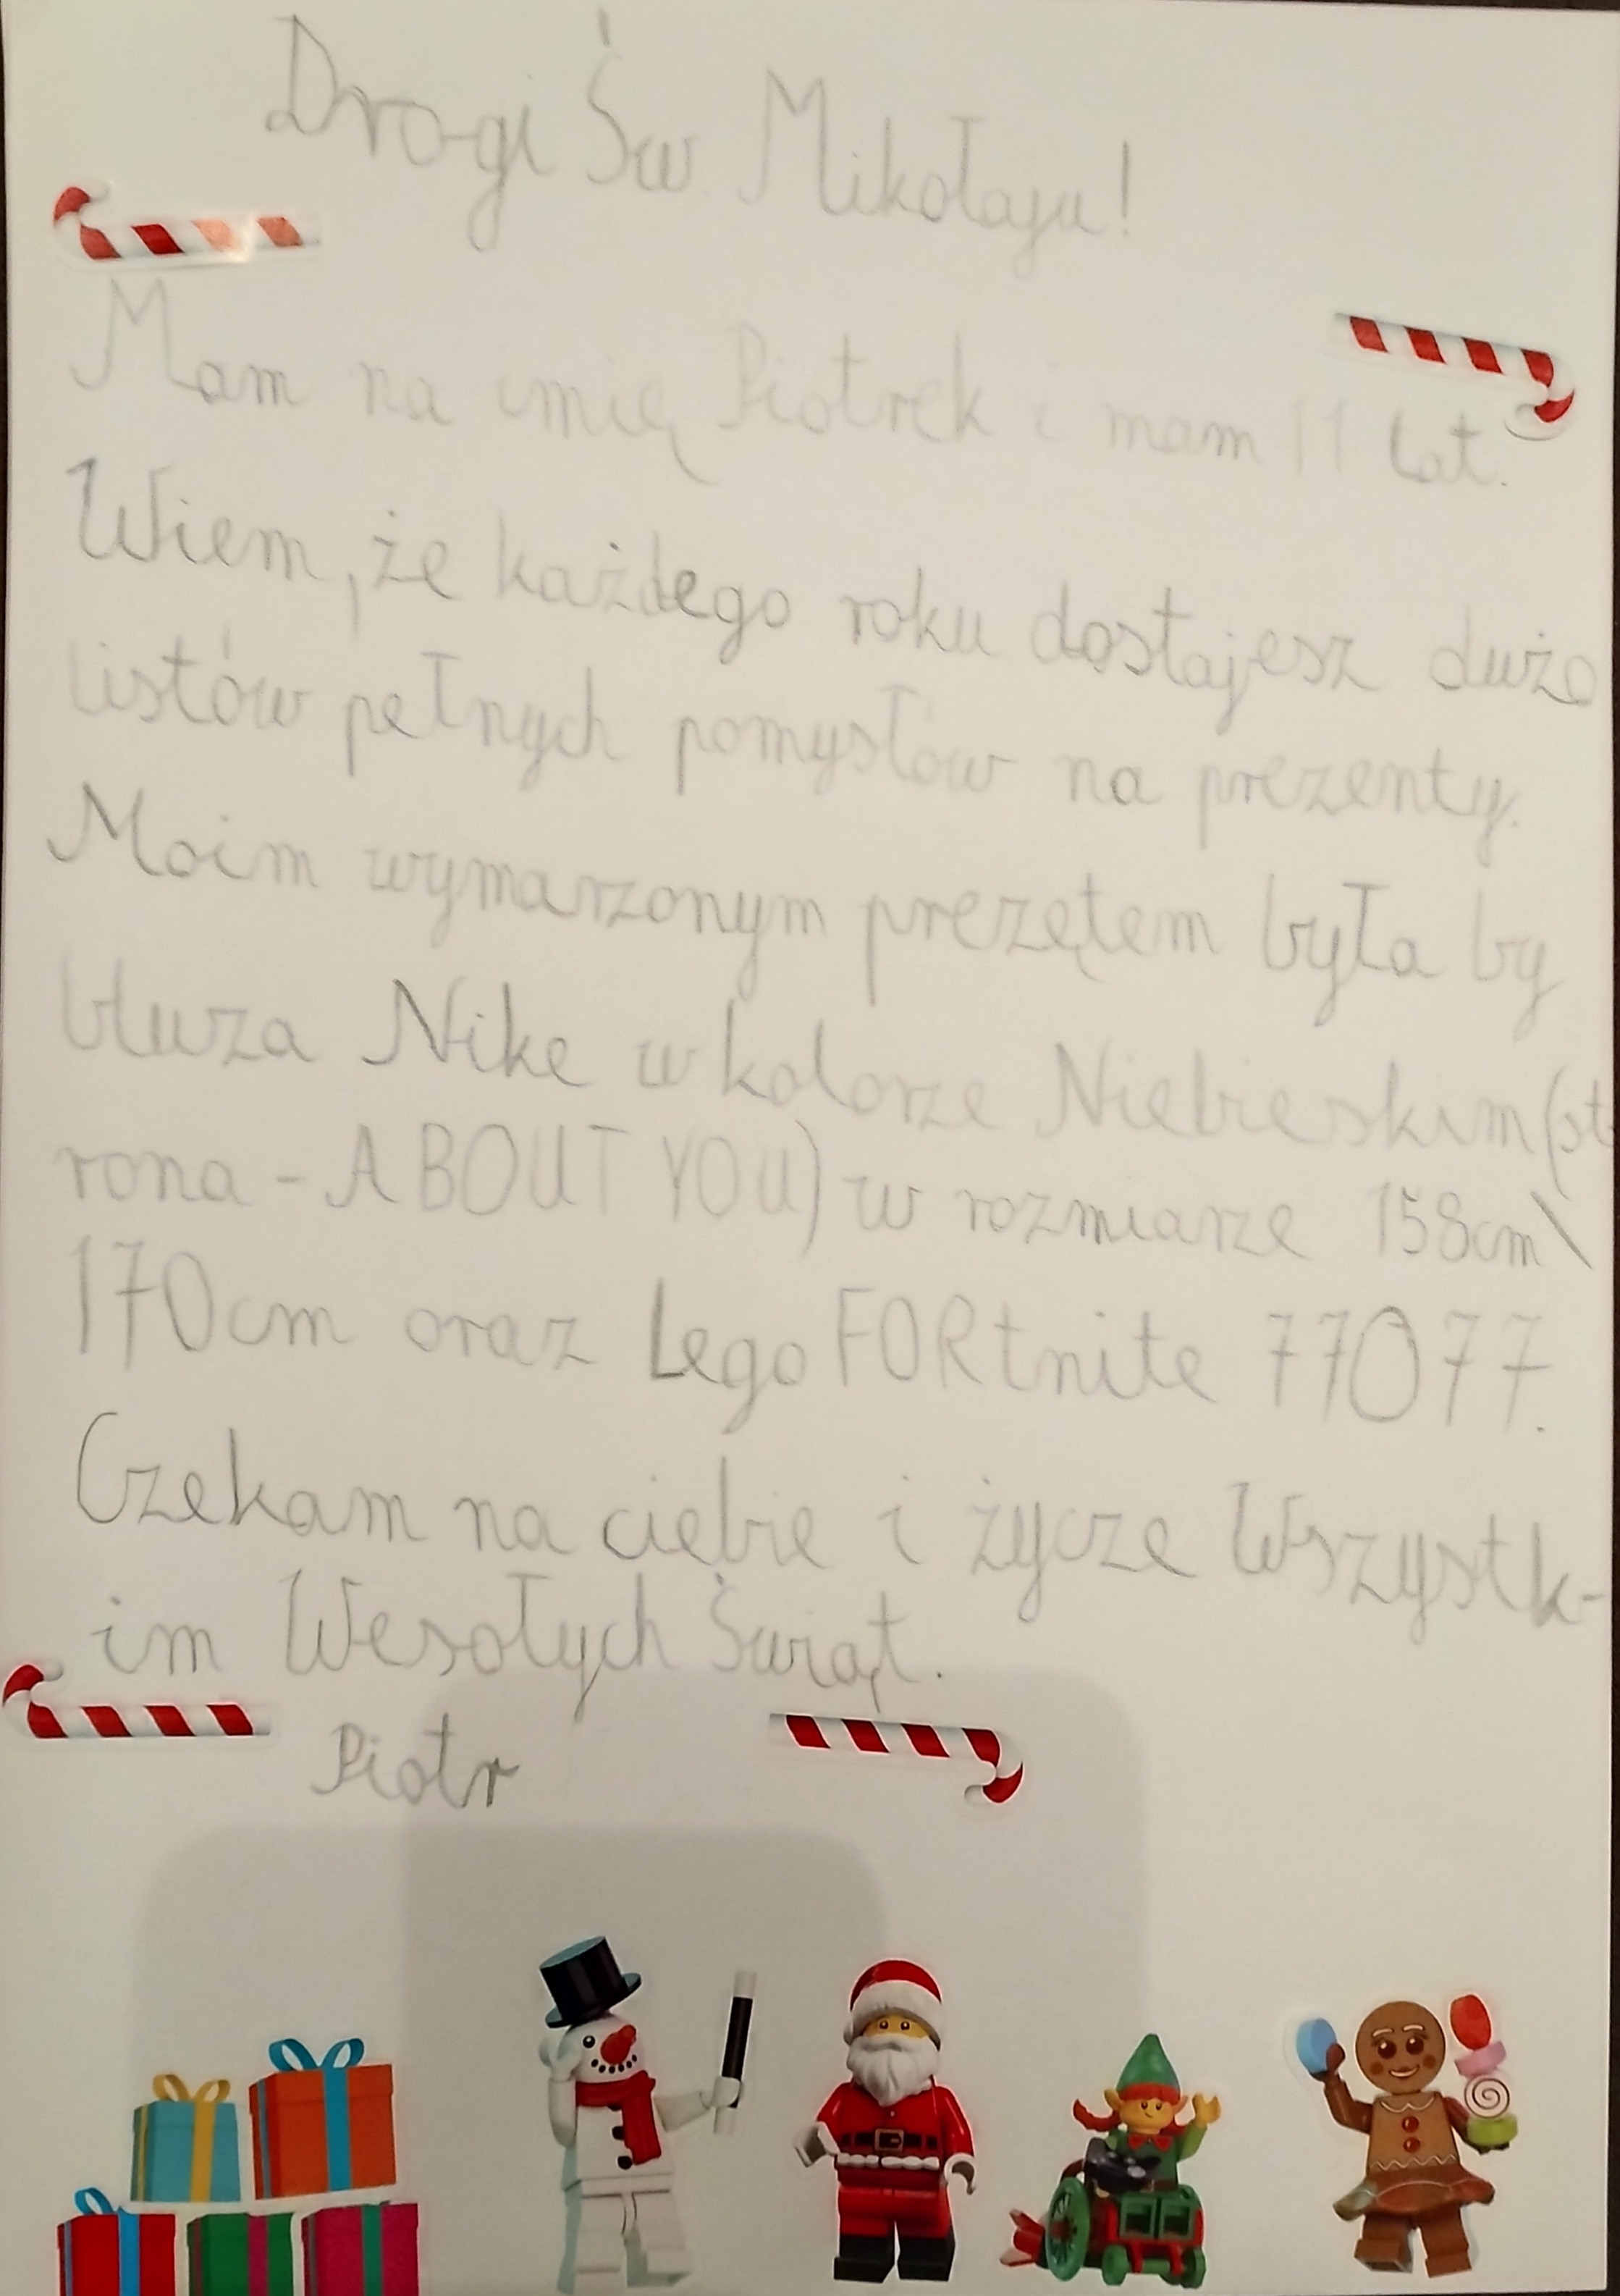 Drogi Św. Mikołaju!
Mam na imię Piotrek i mam 11 lat.
Wiem, że każdego roku dostajesz dużo
listów pełnych pomysłów na prezenty.
Moim wymarzonym prezętem była by
bluza Nike w kolorze Niebieskim (st
rona - ABOUT YOU) w rozmiarze 158cm\
170cm oraz Lego FORtnite 77077.
Czekam na ciebie i życze Wszystk-
im Wesołych Świąt.
Piotr